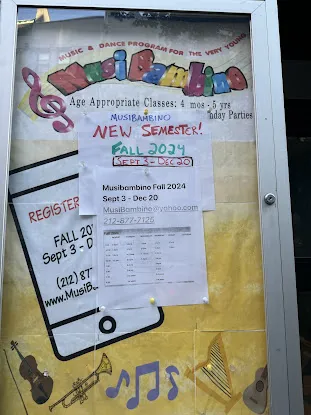 MUSIC & DANCE PROGRAM FOR THE VERY YOUNG
Musi Bambino
Age Appropriate Classes: 4 mos - 5 yrs
hday Parties
MUSIBAMBINO
NEW SEMESTER!
FALL 2024
SEPT 3 - DEC 20
Musibambino Fall 2024
Sept 3 - Dec 20
MusiBambino@yahoo.com
212-877-2125
REGISTER
FALL 20
Sept 3 - D
(212) 877
www.MusiBa